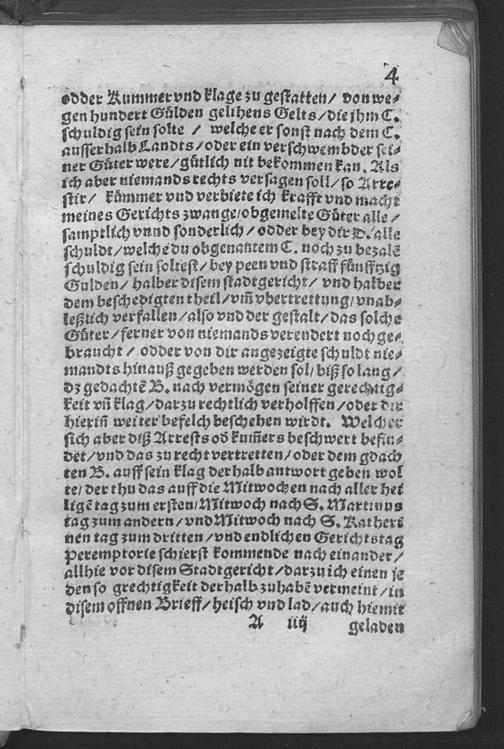 4
odder Kummer vnd klage zu gestatten / von we⸗
gen hundert Gülden gelihens Gelts / die jhm C.
schuldig sein solte / welche er sonst nach dem C.
ausserhalb Landts / oder ein verschwembder sei⸗
ner Güter were / gütlich nit bekommen kan. Als
ich aber niemands rechts versagen soll / so Arre⸗
stir / kümmer vnd verbiete ich krafft vnd macht
meines Gerichts zwange / obgemelte Güter alle /
samptlich vnnd sonderlich / odder bey dir D. alle
schuldt / welche du obgenantem C. noch zu bezalē
schuldig sein soltest / bey peen vnd straff fünfftzig
Gulden / halber disem stadtgericht / vnd halber
dem beschedigten theil / vm̄ vbertrettung / vnab⸗
leßlich verfallen / also vnd der gestalt / das solche
Güter / ferner von niemands verendert noch ge⸗
braucht / odder von dir angezeigte schuldt nie⸗
mandts hinauß gegeben werden sol / biß so lang /
dz gedachtē B. nach vermögen seiner gerechtig⸗
keit vn̄ klag / darzu rechtlich verholffen / oder dir
hierin̄ weiter befelch beschehen wirdt. Welcher
sich aber diß Arrests oð kum̄ers beschwert befin⸗
det / vnd das zu recht vertretten / oder dem gdach
ten B. auff sein klag derhalb antwort geben wol
te / der thu das auff die Mitwochen nach aller hei
ligē tag zum ersten / Mitwoch nach S. Martinus
tag zum andern / vnd Mitwoch nach S. Katheri
nen tag zum dritten / vnd endlichen Gerichtstag
Peremptorie schierst kommende nach einander /
allhie vor disem Stadtgericht / darzu ich einen je
den so grechtigkeit derhalb zuhabē vermeint / in
disem offnen Brieff / heisch vnd lad / auch hiemit
A iiij geladen